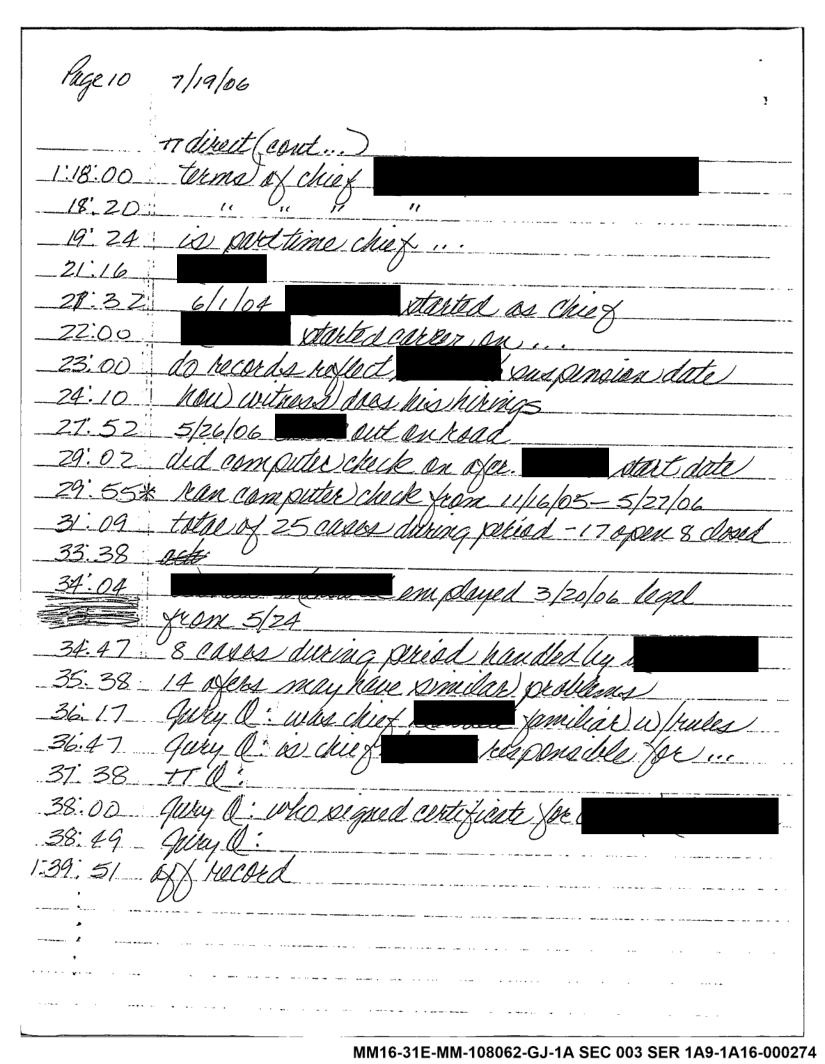 Page 10 7/19/06
π direct (cont...)
1:18:00 terms of chief
18:20 " " " "
19:24 is parttime chief ...
21:16
21:32 6/1/04 started as chief
22:00 started career on ...
23:00 do records reflect suspension date
24:10 how witness does his hirings
27:52 5/26/06 out on road
29:02 did computer check on ofcr. start date
29:55* ran computer check from 11/16/05 - 5/27/06
31:09 total of 25 cases during period - 17 open 8 closed
33:38
34:04 employed 3/20/06 legal
from 5/24
34:47 8 cases during period handled by
35:38 14 ofcrs may have similar problems
36:17 Jury Q: was chief familiar w/rules
36:47 Jury Q: is chief responsible for ...
37:38 π Q:
38:00 Jury Q: who signed certificate for
38:49 Jury Q:
1:39:51 off record
MM16-31E-MM-108062-GJ-1A SEC 003 SER 1A9-1A16-000274